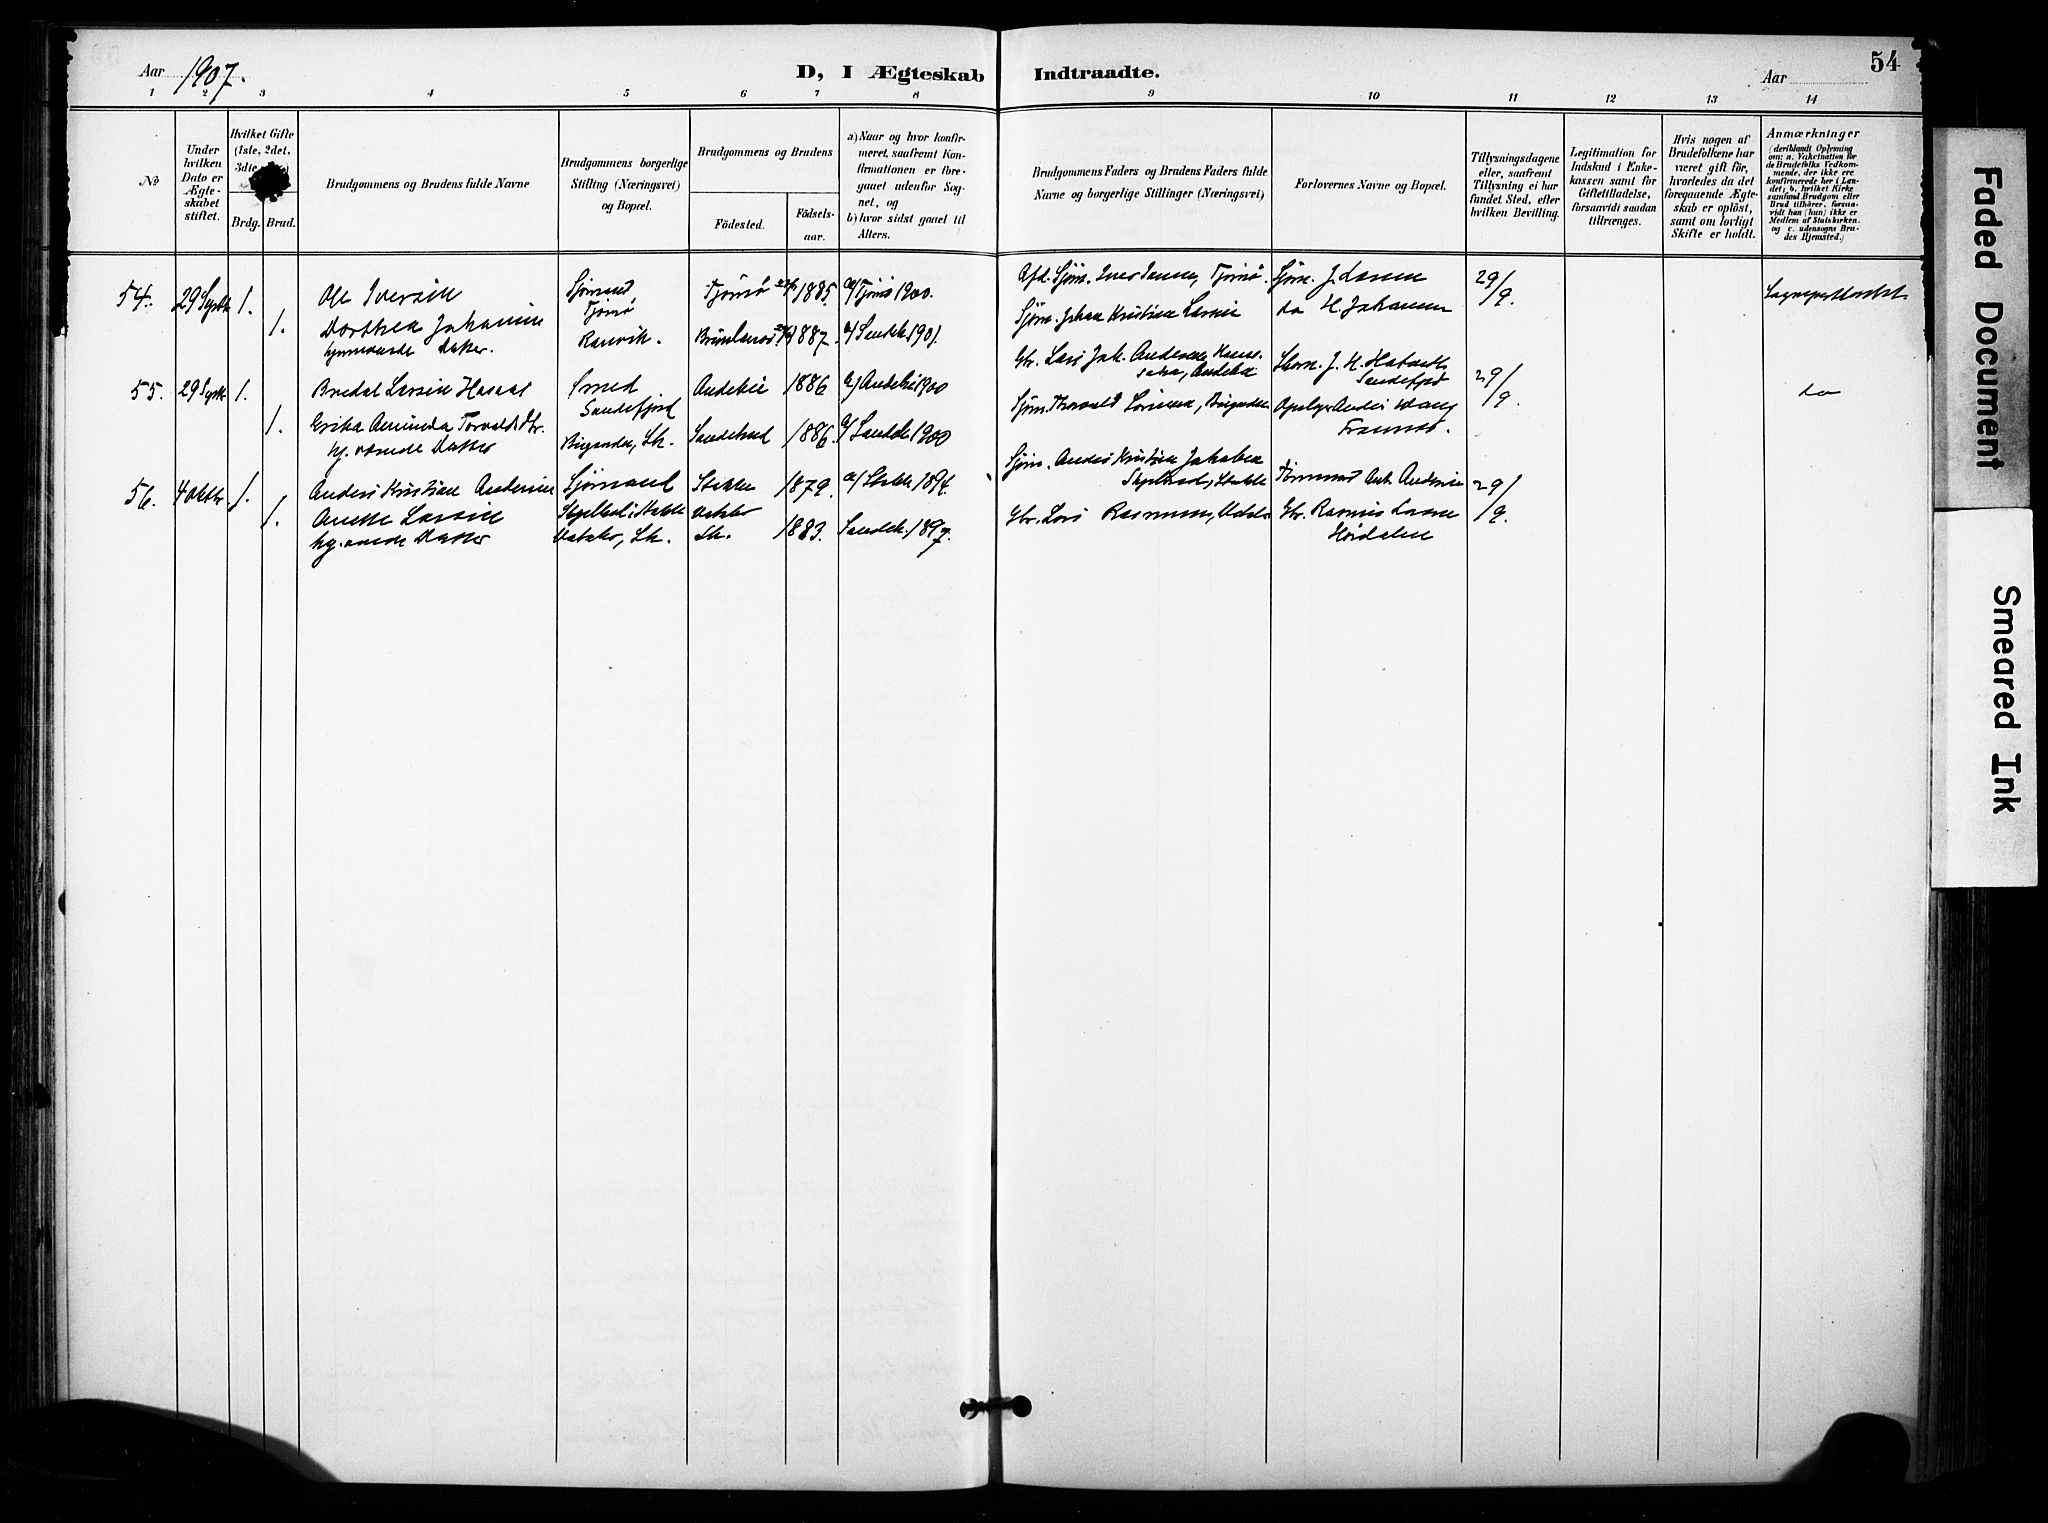 Aar 1907.
D, I Ægteskab Indtraadte.
Aar
54
1 2 3 4 5 6 7 8 9 10 11 12 13 14
No
Under hvilken Dato er Ægte- skabet stiftet.
Hvilket Gifte (1ste, 2det, 3die
Brdg. Brud.
Brudgommens og Brudens fulde Navne
Brudgommens borgerlige Stilling (Næringsvei) og Bopæl.
Brudgommens og Brudens
Födested.
Födsels- aar.
a) Naar og hvor konfir- meret, saafremt Kon- firmationen er fore- gaaet udenfor Sog- net, og
b) hvor sidst gaaet til Alters.
Brudgommens Faders og Brudens Faders fulde Navne og borgerlige Stillinger (Næringsvei)
Forlovernes Navne og Bopæl.
Tillysningsdagene eller, saafremt Tillysning ei har fundet Sted, efter hvilken Bevilling.
Legitimation for Indskud i Enke- kassen samt for Giftetilladelse, forsaavidt saadan tiltrænges.
Hvis nogen af Brudefolkene har været gift för, hvorledes da det foregaaende Ægte- skab er oplöst, samt om lovligt Skifte er holdt.
Anmærkninger (deriblandt Oplysning om: a. Vakcination for de Brudefolks Vedkom- mende, der ikke ere konfirmerede her i Lan- det; b. hvilket Kirke- samfund Brudgom eller Brud tilhörer, forsaa- vidt han (hun) ikke er Medlem af Statskirken. og c. udensogns Bru- des Hjemsted.)
54. 29 Septb 1. Ole Iversen Sjømand Tjømø Tjømø 1885. a/ Tjømø 1900. Afd. Sjøm. Iver Jensen, Tjømø. Sjøm. J. Larsen 29/9.
1. Dorthea Johansen Ranvik. Brunlanes 1887. a/ Sandeh. 1901. Sjøm. Johan Kristian Larsen do H. Johansen
hjemmevæsende Datter.
55. 29 Septb 1. Bredal Larsen Hasaas Smed Sandefjord Andebu 1886 a/ Andebu 1900 Gbr. Lars Jak. Andersen Andebu J. H. Sandefjord 29/9. do
1. Erika Aminda Torvaldsdtr. Sh. Sandeherred 1886. a/ Sandeh 1900 Sjøm. Thorvald Anders Wang Framnæs.
hj. værende Datter
56. 4 Oktbr. 1. Anders Kristian Andersen Sjømand Stokke 1879. a/ Stokke 1894. Sjøm. Anders Kristian Jakobsen Stokke Tømmerm. Ant. Andersen 29/9.
1. Anette Larsen Sh. Sh. 1883. Sandeh. 1897. Gbr. Lars Rasmussen, Gbr. Rasmus Larsen
hj. værende Datter Hørdalen
Faded Document
Smeared Ink